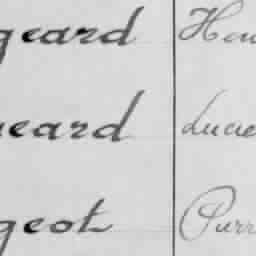 geard Hen
eard Lucie
geot Pierr